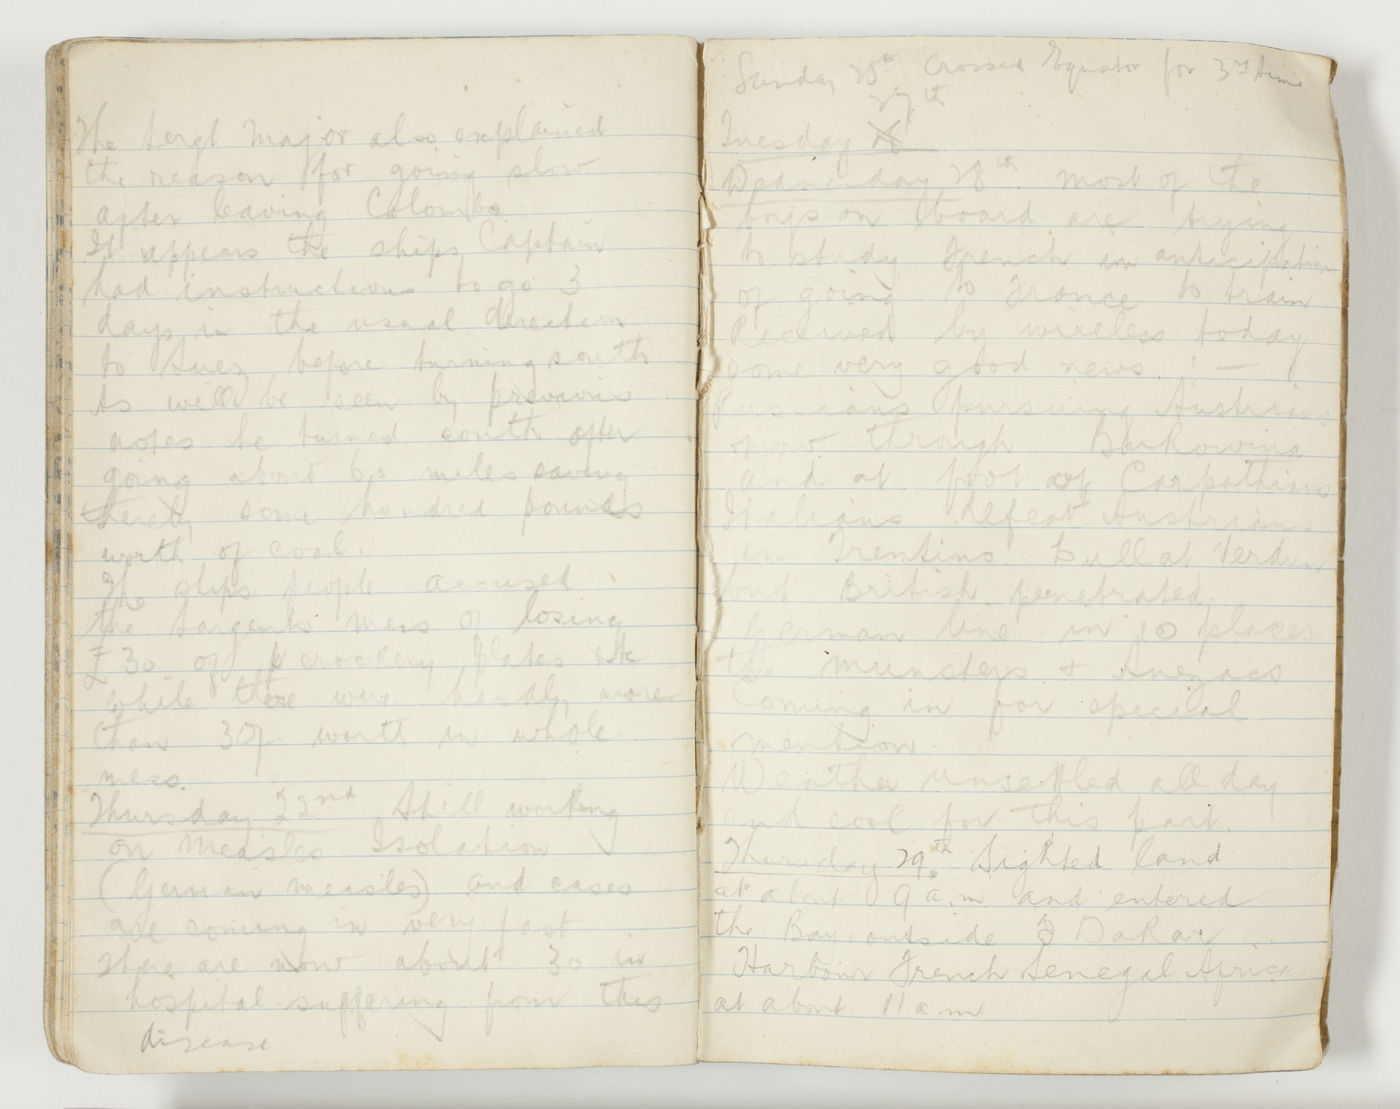 The Sergt Major also explained
the reason for going slow
after leaving Colombo.
It appears the ships Captain
had instructions to go 3
days in the usual direction
to Suez before turning south
As will be seen by previous
notes he turned south after
going about 60 miles saving
thereby some hundred pounds
worth of coal.
The ships people accused
the Sargents mess of losing
£30 of crockery, plates etc
while there were hardly more
than 30/- worth in whole
mess.
Thursday 22nd Still working
on Measles Isolation
(German measles) and cases
are coming in very fast
There are now about 30 in
hospital suffering from this
disease
Sunday 25th Crossed Equator for 3rd time
27th
Tuesday
Wednesday 28th. Most of the
boys on board are trying
to study French in anticipation
of going to France to train
Received by wireless today
some very good news ! —
Russians pursuing Austrians
now through Bukowina
and at foot of Carpathians
Italians defeat Austrians
in Trentino. Lull at Verdun
but British penetrated
German line in 10 places
the Munsters & Anezacs
Coming in for special
mention.
Weather unsettled all day
and cool for this part.
Thursday 29th. Sighted land
at about 9 a.m and entered
the Bay outside Dakar
Harbour French Senegal Africa
at about 11 am